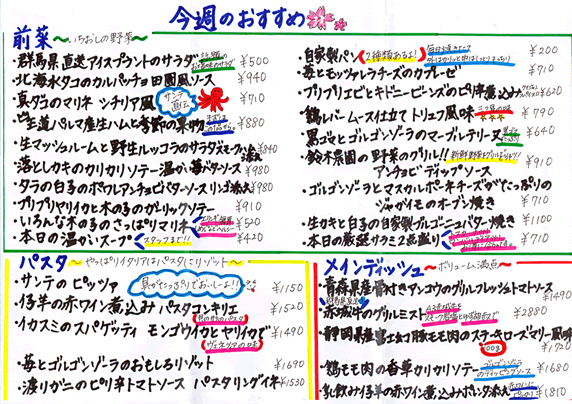 今週のおすすめ
前菜 〜いちおしの野菜〜
・群馬県直送アイスプラントのサラダ ¥500
・北海水タコのカルパッチョ田園風ソース ¥940
・真ダラのマリネ シチリア風 ¥710
・王道パルマ産生ハムと季節の果物 ¥880
・生マッシュルームと野生ルッコラのサラダ ¥840
・落としカキのカリカリソテー温か海苔バタソース ¥980
・タラの白子のポワレアンチョビバターソースリンゴ添え ¥980
・プリプリヤリイカと木の子のガーリックソテー ¥910
・いろんな木の子のさっぱりマリネ ¥520
・本日の温かいスープ スタッフまで!! ¥420
・自家製パン 2種類あるよ! ¥200
・苺とモッツァレラチーズのカプレーゼ ¥710
・プリプリエビとキドニービーンズのピリ辛煮込み ¥620
・鶏レバームース仕立てトリュフ風味 ¥790
・黒ゴマとゴルゴンゾーラのマーブルテリーヌ ¥640
・鈴木農園の野菜のグリル!!
アンチョビディップソース ¥910
・ゴルゴンゾーラとマスカルポーネチーズがたっぷりの
ジャガイモのオーブン焼き ¥710
・生カキと白子の自家製ブルゴーニュバター焼き ¥1100
・本日の厳選サラミ2点盛り ¥710
パスタ 〜やっぱりイタリアはパスタにリゾット〜
・サンテのピッツァ ¥1150
・仔羊の赤ワイン煮込みパスタコンキリエ ¥1520
・イカスミのスパゲッティ モンゴウイカとヤリイカで ¥1490
ヴェネツィアの味
・苺とゴルゴンゾーラのおもしろリゾット ¥1690
・渡りガニのピリ辛トマトソース パスタリングイネ ¥1530
メインディッシュ 〜ボリューム満点〜
・青森県産骨付きアンコウのグリルフレッシュトマトソース ¥1490
・赤城牛のグリルミスト ¥2880
・静岡県産 豚モモ肉のステーキローズマリー風味 ¥1720
・鶏モモ肉の香草カリカリソテー ¥1680
・乳飲み仔羊の赤ワイン煮込ポレンタ添え ¥1810